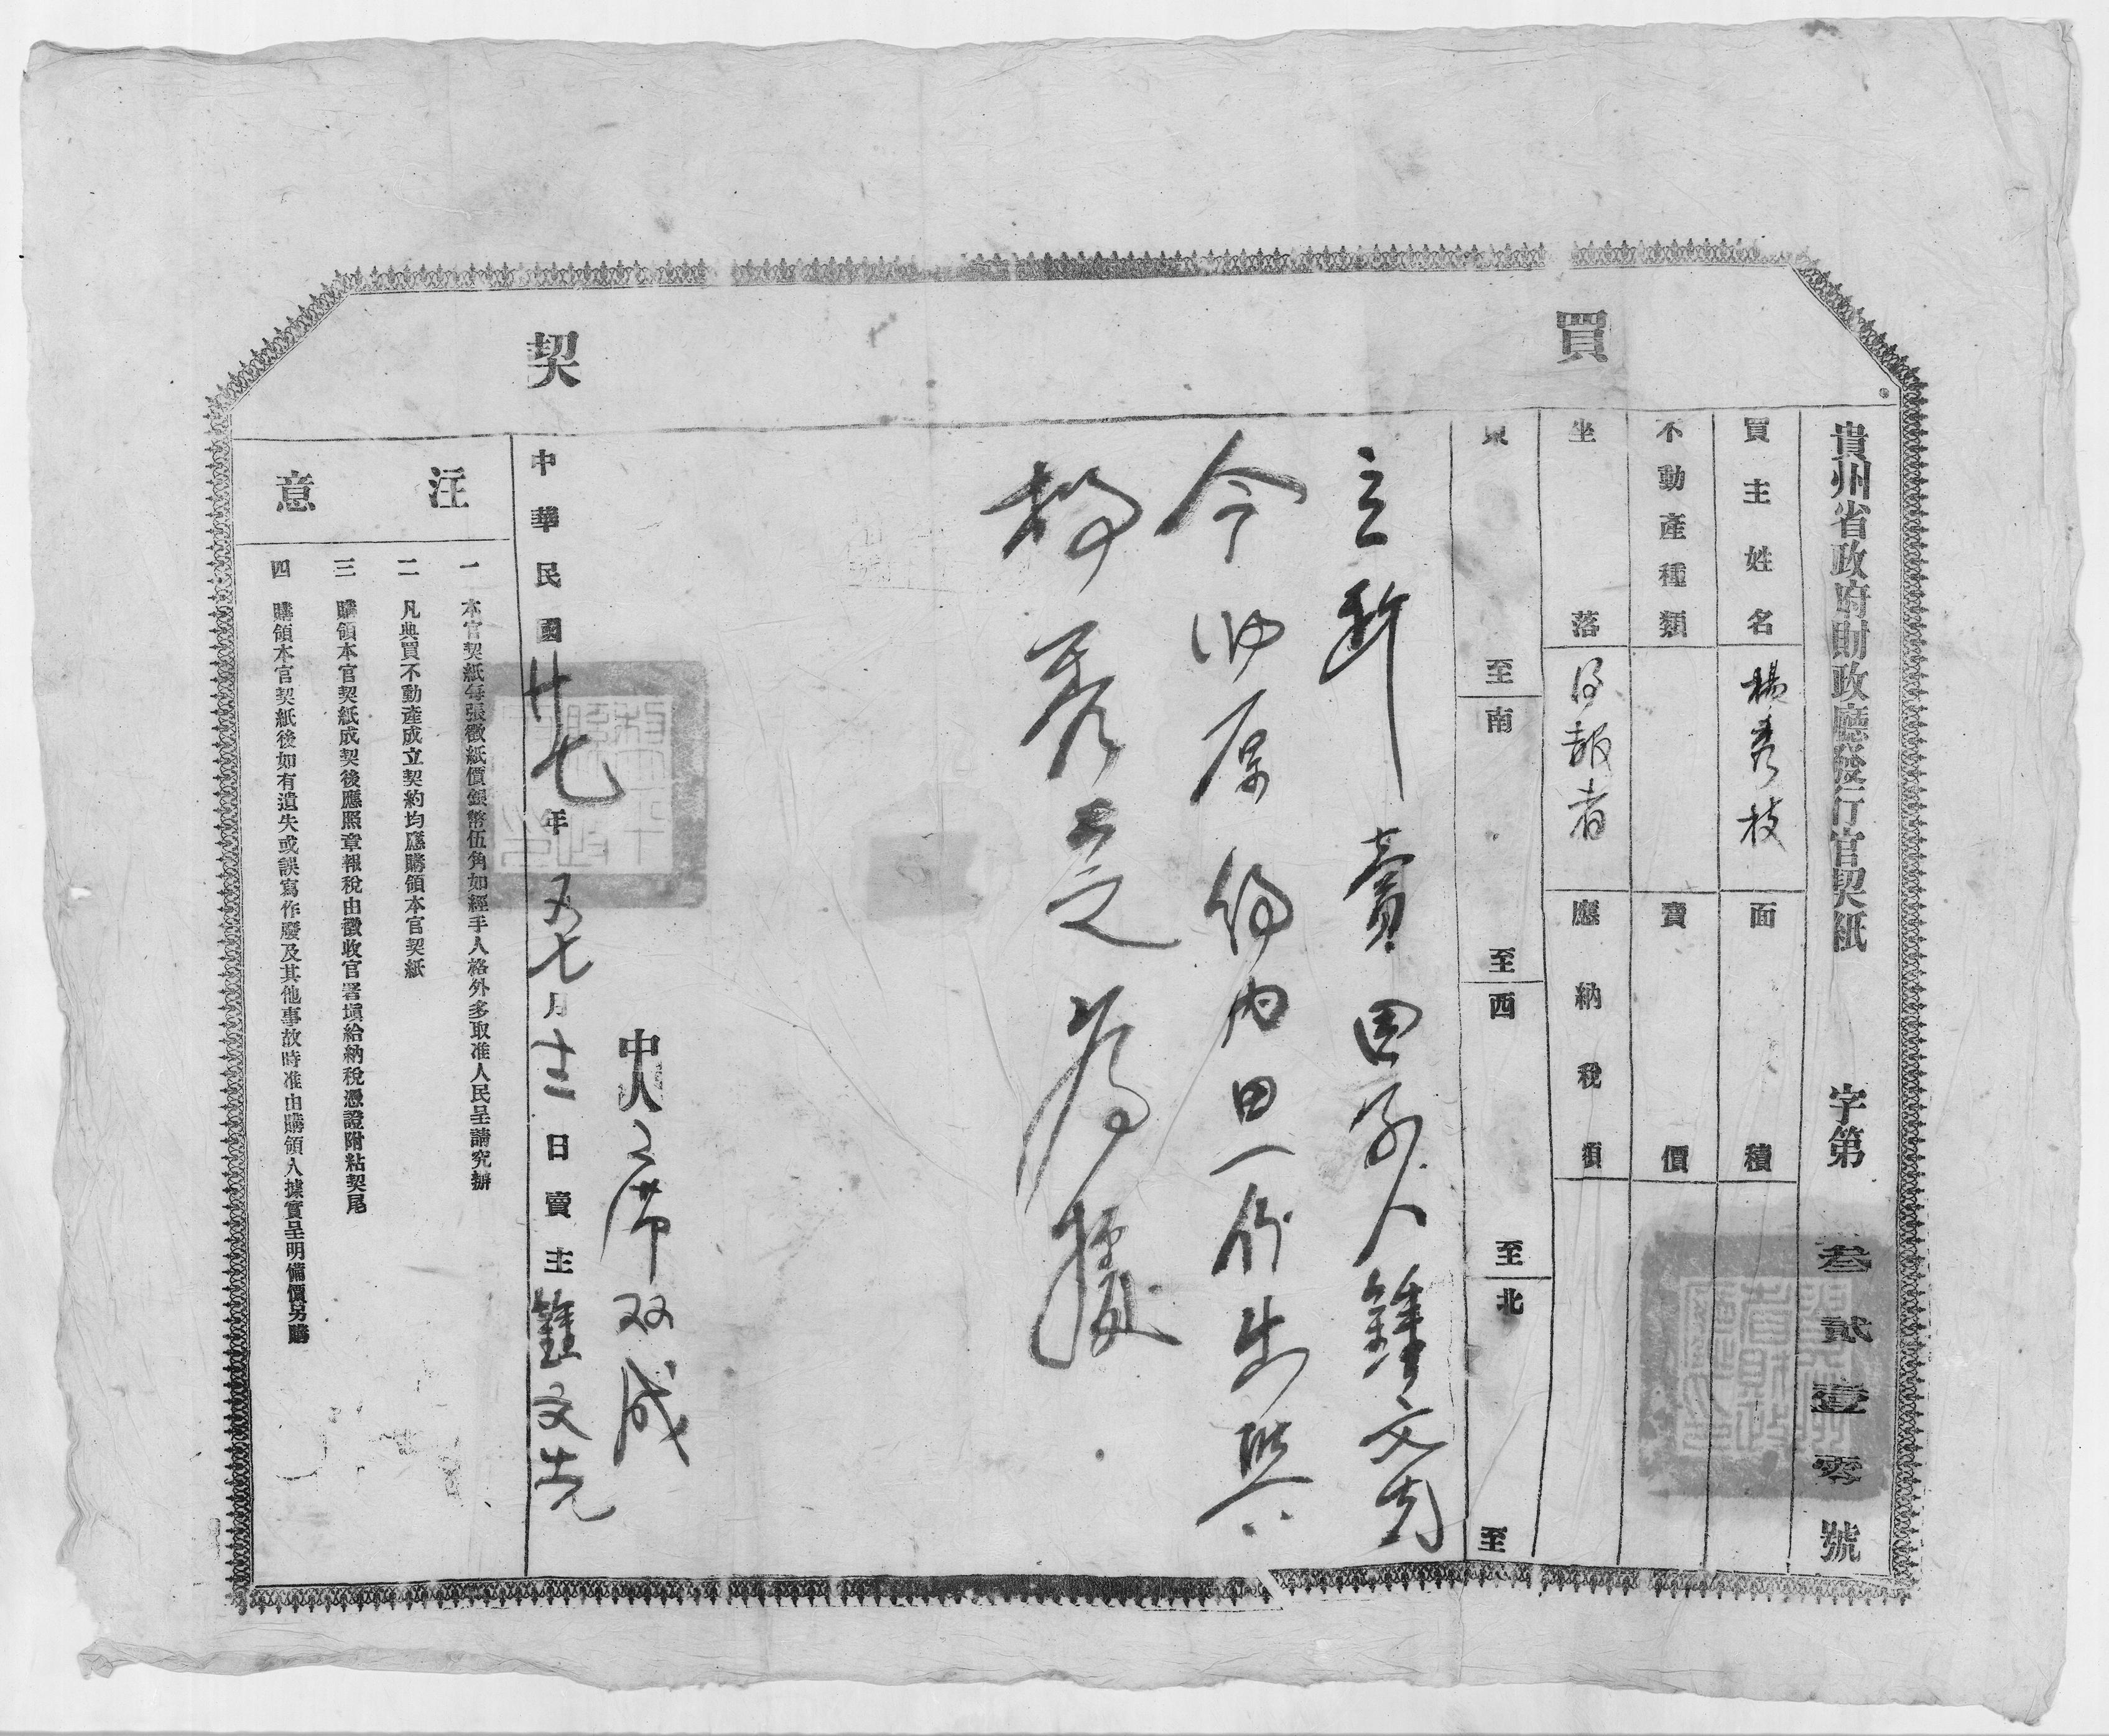 買契
貴州省政府財政廳發行官契紙 字第叁貳壹零號
買主姓名 楊秀枝 面積
不動產種類 賣價
坐落 得報者 應納稅額
東至 南至 西至 北至
立斷賣田字人鍾文先
今收原佃內田一份出與
楊秀芝為據
中人 席双成
中華民國廿七年 七月十二日 賣主 鍾文先
注意
一 本官契紙每張徵紙價銀幣伍角如經手人格外多取准人民呈請究辦
二 凡典買不動產成立契約均應購領本官契紙
三 購領本官契紙成契後應照章報稅由徵收官署填給納稅憑證附粘契尾
四 購領本官契紙後如有遺失或誤寫作廢及其他事故時准由購領人據實呈明備價另購